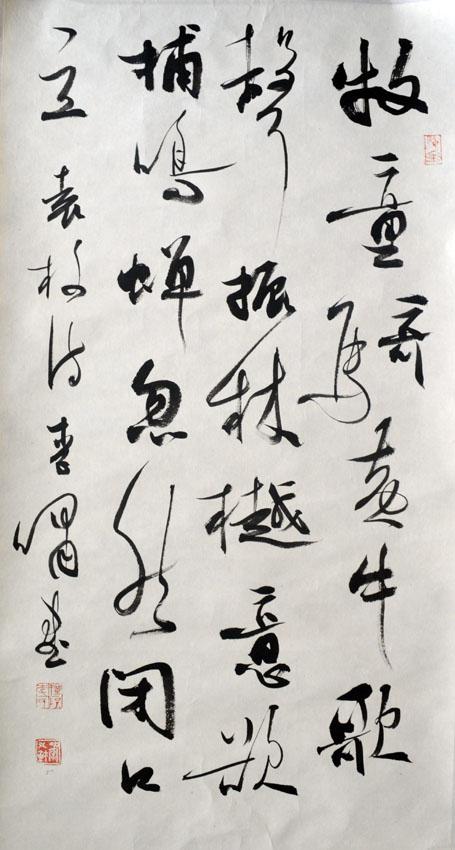 牧童騎黄牛歌
聲振林樾意欲
捕鳴蝉忽然闭口
立 袁枚诗